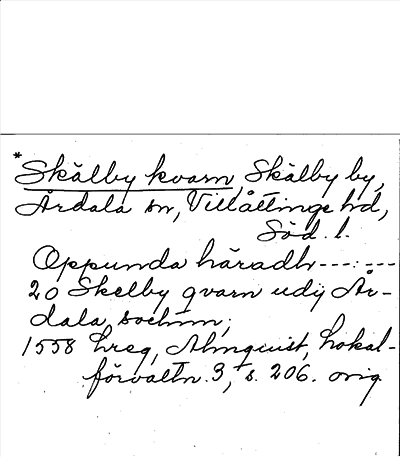 * Skälby kvarn, Skälby by,
Årdala sn, Villåttinge hd,
Söd. l.
Oppunda häradh ---:---
20 Skelby qvarn udij År-
dala sochnn;
1558 hreg, Almquist, Lokal-
förvaltn. 3, s. 206. orig